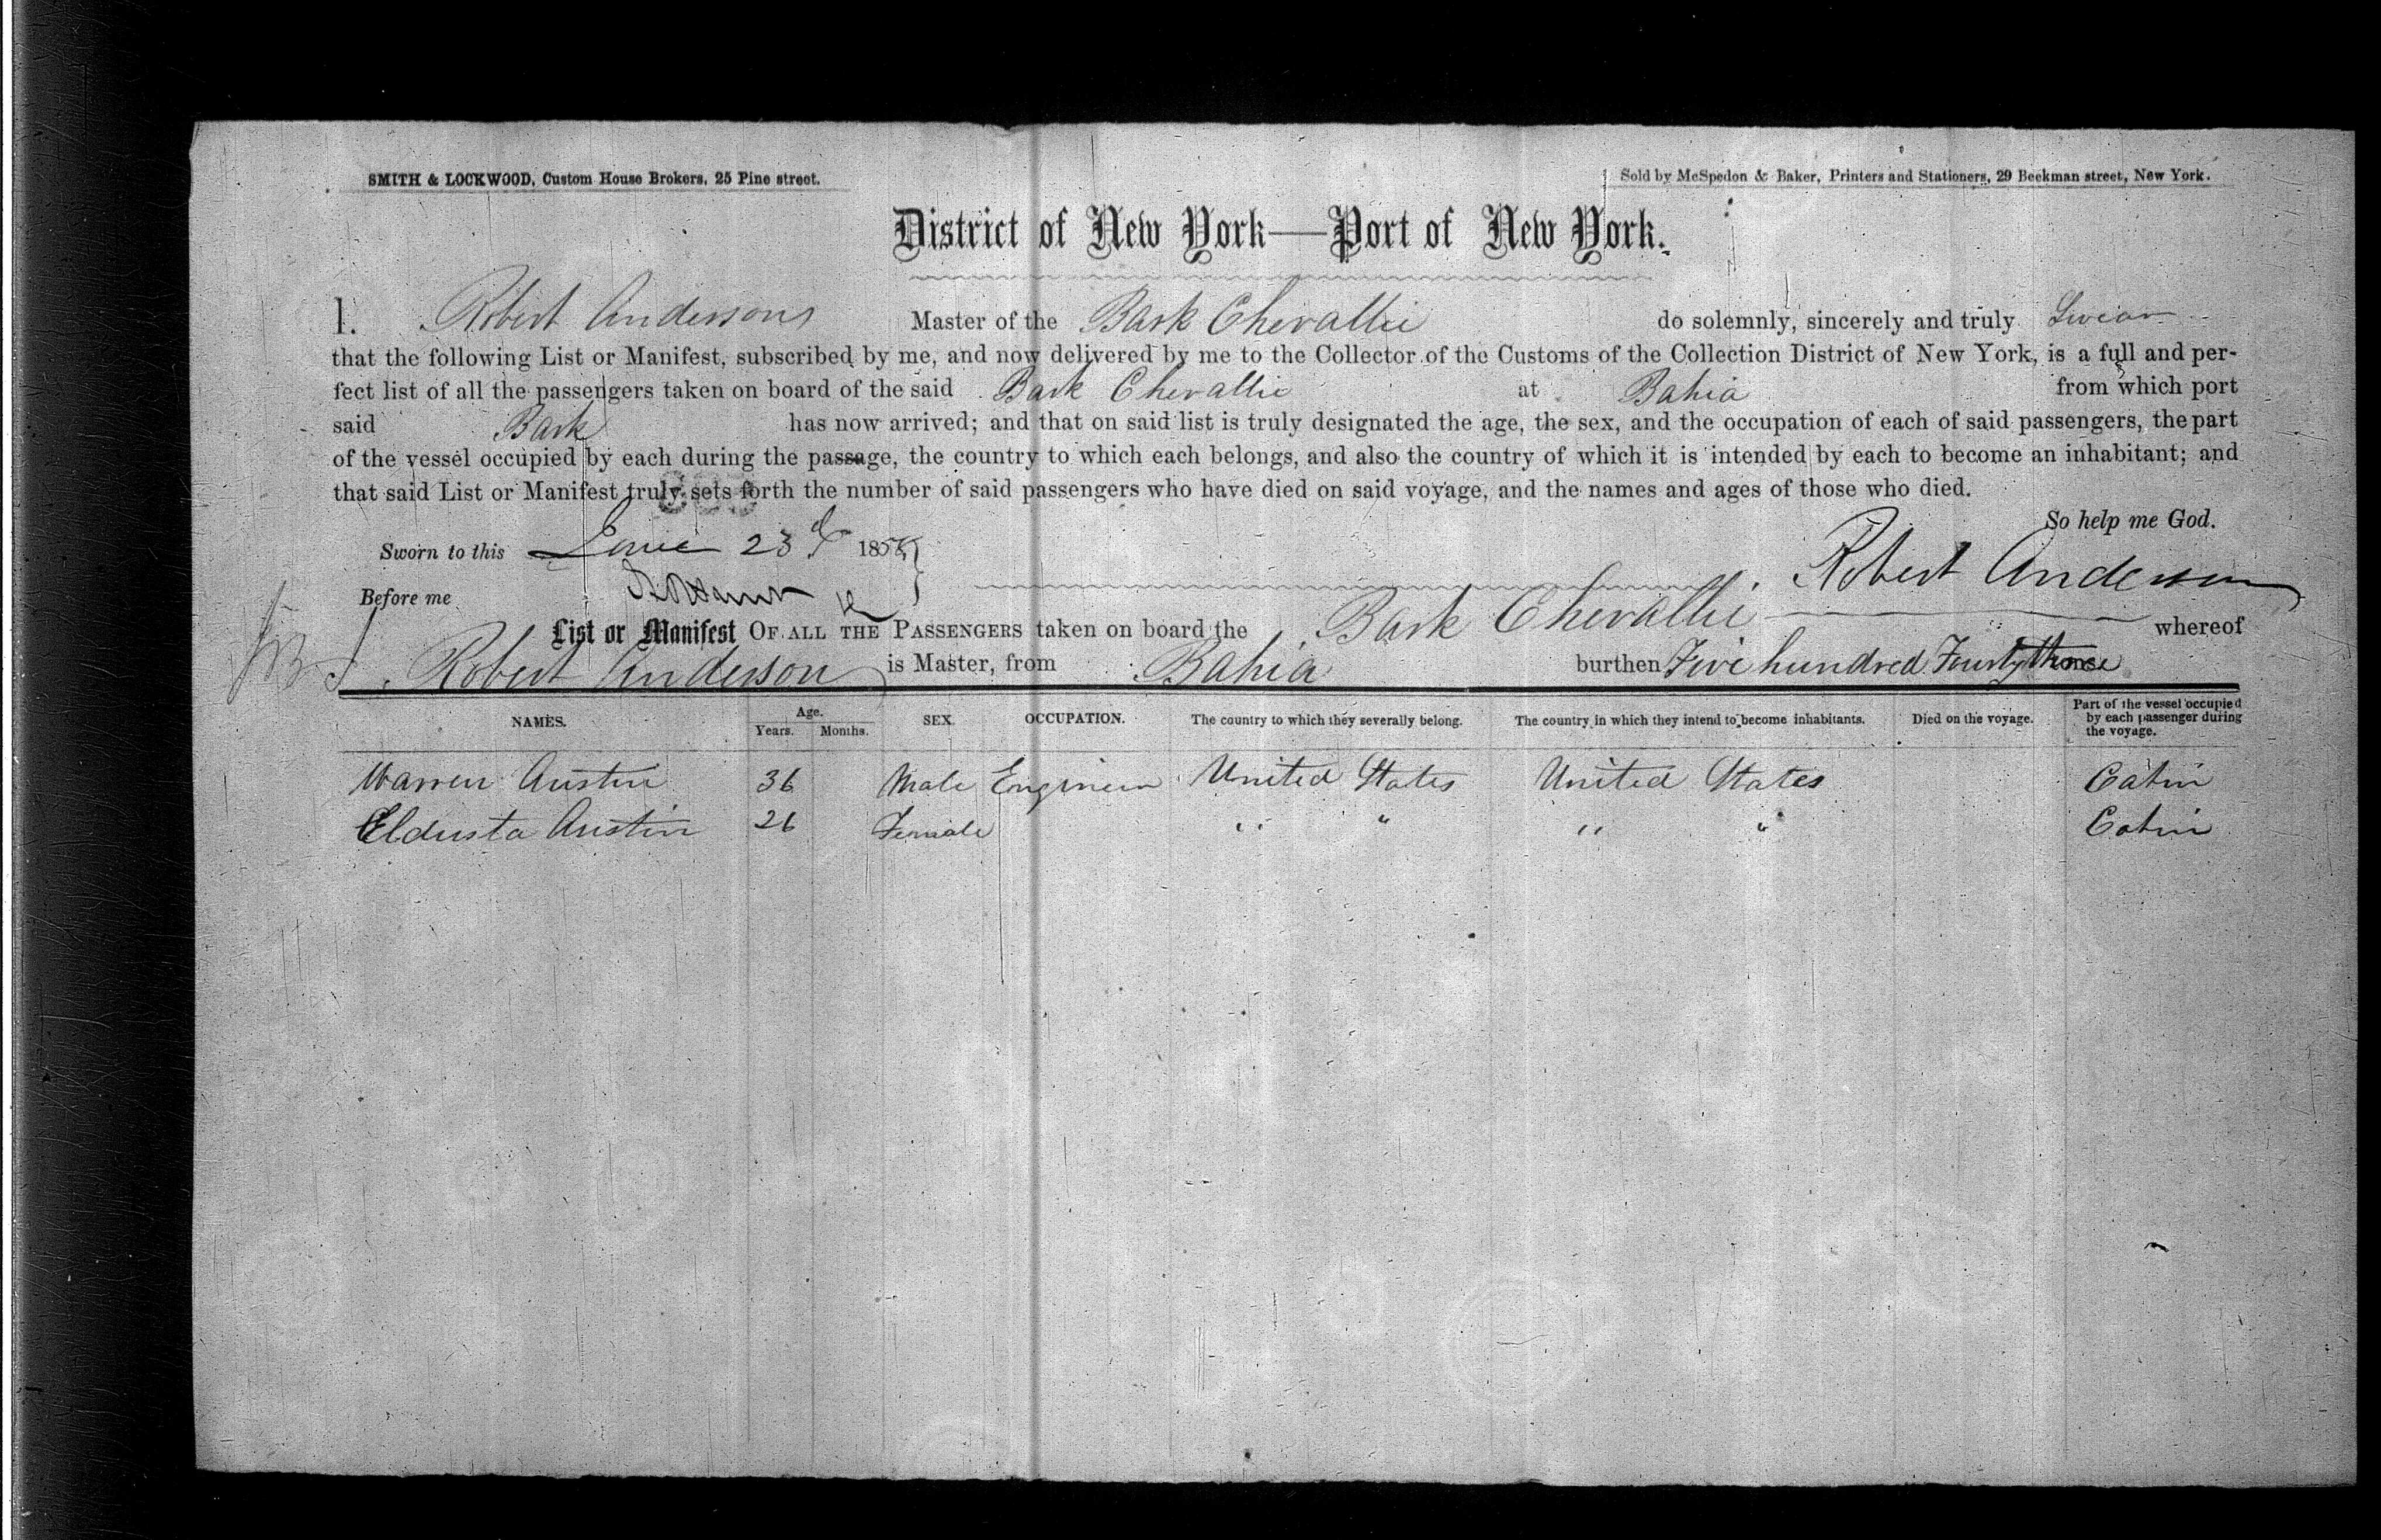 SMITH & LOCKWOOD, Custom House Brokers, 25 Pine street.
Sold by McSpedon & Baker, Printers and Stationers, 29 Beekman street, New York.
District of New York—Port of New York.
I. Robert Anderson Master of the Bark Chevallie do solemnly, sincerely and truly Swear
that the following List or Manifest, subscribed by me, and now delivered by me to the Collector of the Customs of the Collection District of New York, is a full and per-
fect list of all the passengers taken on board of the said Bark Chevallie at Bahia from which port
said Bark has now arrived; and that on said list is truly designated the age, the sex, and the occupation of each of said passengers, the part
of the vessel occupied by each during the passage, the country to which each belongs, and also the country of which it is intended by each to become an inhabitant; and
that said List or Manifest truly sets forth the number of said passengers who have died on said voyage, and the names and ages of those who died.
So help me God.
Sworn to this June 23d 185
Robert Anderson
Before me
List or Manifest OF ALL THE PASSENGERS taken on board the Bark Chevallie whereof
Robert Anderson is Master, from Bahia burthen Five hundred Fourty three
NAMES. Age. Years. Months. SEX. OCCUPATION. The country to which they severally belong. The country in which they intend to become inhabitants. Died on the voyage. Part of the vessel occupied by each passenger during the voyage.
Warren Austin 36 Male Engineer United States United States Cabin
Eldusta Austin 26 Female " " " " Cabin